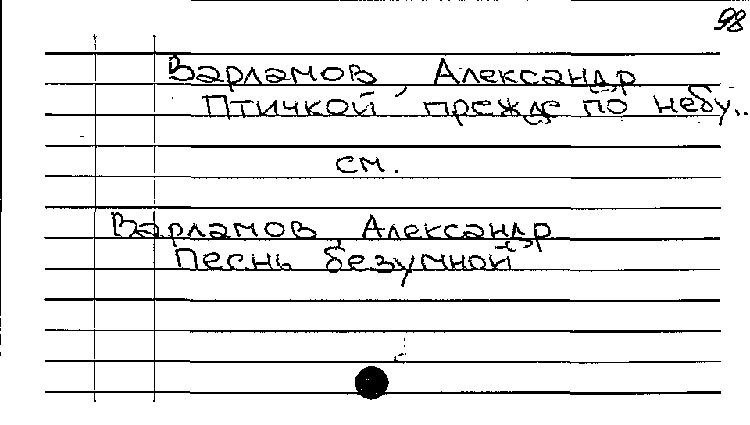 98
Варламов, Александр
Птичкой прежде по небу..
см.
Варламов, Александр
Песнь безумной